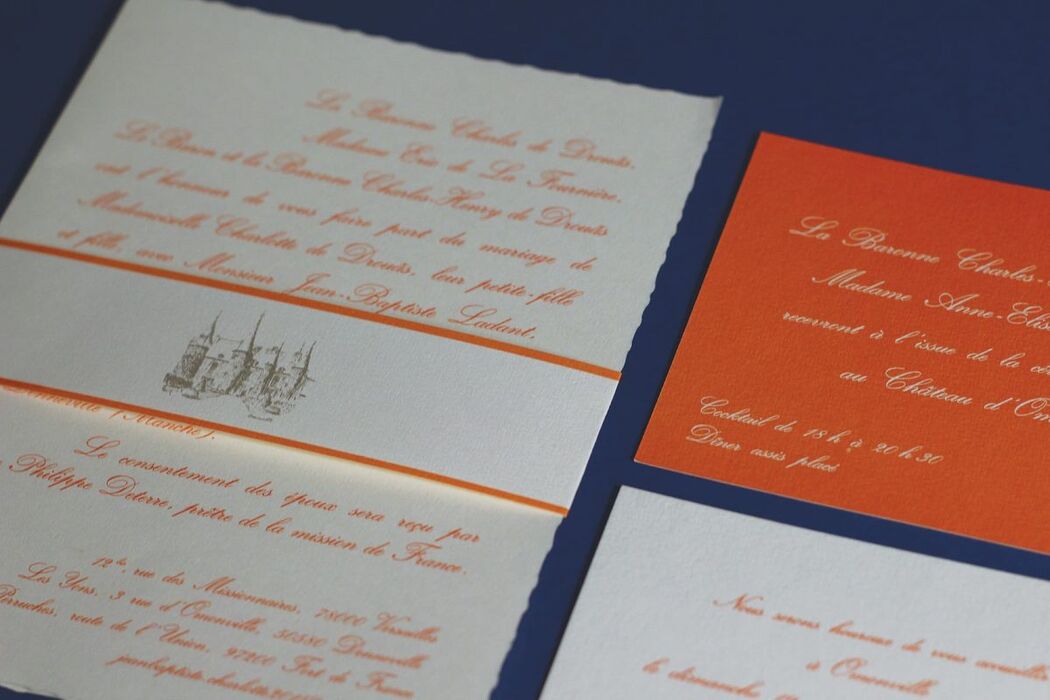 La Baronne Charles de Drouâs,
Madame Eric de La Fournière,
Le Baron et la Baronne Charles-Henry de Drouâs
ont l'honneur de vous faire part du mariage de
Mademoiselle Charlotte de Drouâs, leur petite-fille
et fille, avec Monsieur Jean-Baptiste Ladant.
(Manche).
Le consentement des époux sera reçu par
Philippe Deterre, prêtre de la mission de France.
12 bis, rue des Missionnaires, 78000 Versailles
Les Yons, 3 rue d'Omonville, 50580 Denneville
Perruches, route de l'Union, 97200 Fort de France
La Baronne Charles-
Madame Anne-Elis
recevront à l'issue de la cé
au Château d'Om
Cocktail de 18 h à 20 h 30
Dîner assis placé
Nous serons heureux de vous accueillir
à Omonville
le dimanche